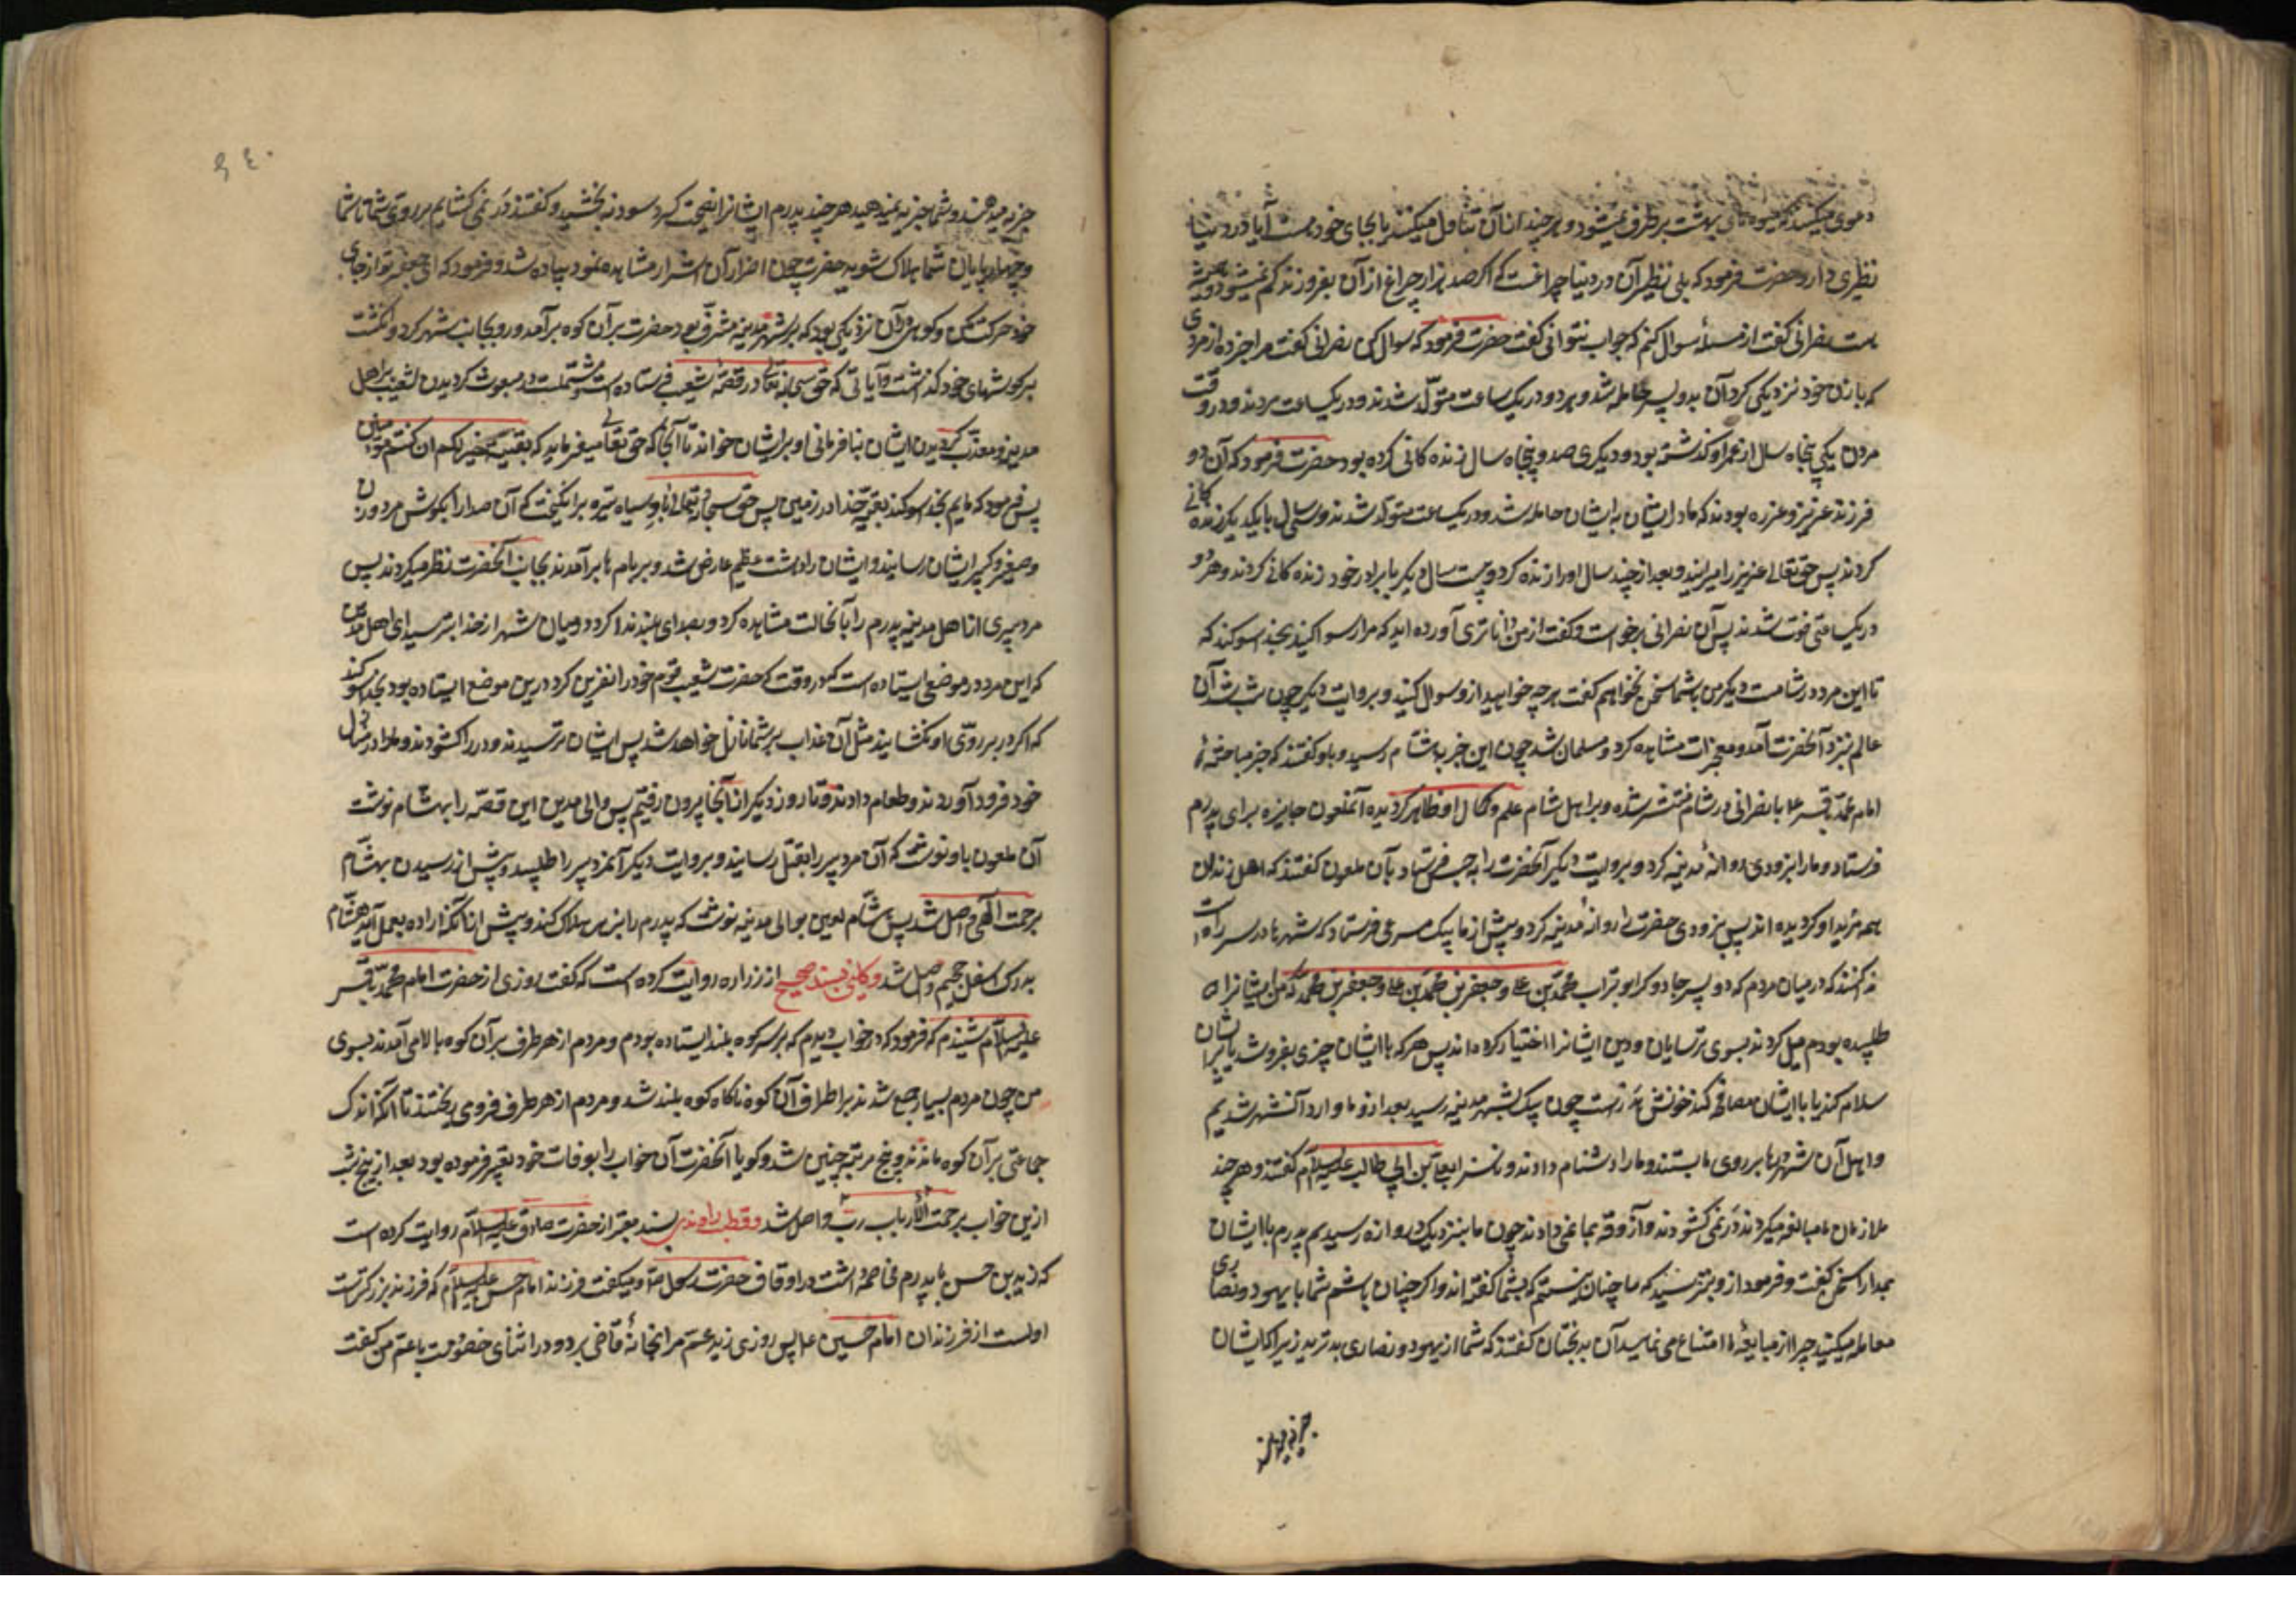 دعوی میکنید که میوه های بهشت برطرف نمیشود و هر چند از آن تناول میکنند باز بجای خود هست آیا در دنیا
نظیری دارد حضرت فرمود که بلی نظیر آن در دنیا چراغست که اگر صد هزار چراغ از آن بفروزند کم نمیشود و همیشه
هست نصرانی گفت از مسئله سوال کنم که جواب نتوانی گفت حضرت فرمود که سوال کن نصرانی گفت مرا خبر ده از مردی
که با زن خود نزدیکی کرد آن بدو پسر حامله شد و هر دو در یک ساعت متولّد شدند و در یک ساعت مردند و در وقت
مردن یکی پنجاه سال از عمر او گذشته بود و دیگری صد و پنجاه سال زنده کانی کرده بود حضرت فرمود که آن دو
فرزند عزیز و عزره بودند که مادر ایشان به ایشان حامله شد و در یک ساعت متولّد شدند و سی سال با یکدیگر زنده کانی
کردند پس حق تعالی عزیز را میرانید و بعد از چند سال او را زنده کرد و بیست سال دیگر با برادر خود زنده کانی کردند و هر دو
در یک ساعت فوت شدند پس آن نصرانی برخواست و گفت از من داناتری آورده اید که مرا رسوا کنید بخدا سوگند که
تا این مرد در شامست دیگر من با شما سخن نخواهم گفت هر چه خواهید از و سوال کنید و بروایت دیگر چون شب شد آن
عالم نزد آنحضرت آمد و معجزات مشاهده کرد و مسلمان شد چون این خبر به هشام رسید و باو گفتند که خبر مباحثهٔ
امام محمّد باقر ع با نصرانی در شام منتشر شده و بر اهل شام علم و کمال او ظاهر کردیده آنملعون جایزه برای پدرم
فرستاد و ما را بزودی روانهٔ مدینه کرد و بروایت دیگر آنحضرت را به حبس فرستاد بآن ملعون گفتند که اهل زندان
همه مرید او گردیده اند پس بزودی حضرت را روانهٔ مدینه کرد و پیش از ما پیک سریعی فرستاد که شهرها در سر راه است
ندا کنند که در میان مردم که دو پسر جادوگر ابو تراب محمّد بن علی و جعفر بن محمّد که من ایشانرا
طلبیده بودم میل کردند بسوی ترسایان و دین ایشانرا اختیار کرده اند پس هر که با ایشان چیزی بفروشد یا بر ایشان
سلام کند یا با ایشان مصافحه کند خونش هدرست چون پیک بشهر مدینه رسید بعد از و ما وارد آنشهر شدیم
و اهل آن شهر درها بر روی ما بستند و ما را دشنام دادند و ناسزا بعلی بن ابی طالب علیه السلام گفتند و هر چند
ملازمان ما مبالغه میکردند در نمی کشودند و آزوقه بما نمی دادند چون ما بنزدیک دروازه رسیدیم پدرم با ایشان
بمدارا سخن گفت و فرمود از خدا بترسید که ما چنان نیستیم که بشما گفته اند و اگر چنان باشیم شما با یهود و نصاری
معامله میکنید چرا از مبایعهٔ ما امتناع می نمایید آن بدبختان گفتند که شما از یهود و نصاری بدترید زیرا که ایشان
جزیه میدهند
جزیه میدهند و شما جزیه نمیدهید هر چند پدرم ایشانرا نصیحت کرد سود نه بخشید و گفتند در نمی کشایم بر روی شما تا شما
و چهارپایان شما هلاک شوید حضرت چون اصرار آن اشرار مشاهده نمود پیاده شد و فرمود که ای جعفر تو از جای
خود حرکت مکن و کوهی در آن نزدیکی بود که بر شهر مدین مشرف بود حضرت بر آن کوه برآمد و رو بجانب شهر کرد و انگشت
بر گوشهای خود گذاشت و آیاتی که حق سبحانه و تعالی در قصهٔ شعیب فرستاده است و مشتملست بر مبعوث کردیدن شعیب بر اهل
مدین و معذّب کردیدن ایشان بنافرمانی او بر ایشان خواند تا آنجا که حق تعالی میفرماید که بقیت الله خیر لکم ان کنتم مؤمنین
پس فرمود که ماییم بخدا سوگند بقیّهٔ خدا در زمین پس حق سبحانه و تعالی باد سیاه تیره برانگیخت که آن صدا را بگوش مرد و زن
و صغیر و کبیر ایشان رسانید و ایشان را دهشت عظیم عارض شد و بر بام ها برآمدند بجانب آنحضرت نظر میکردند پس
مرد پیری از اهل مدین پدرم را بآنحالت مشاهده کرد و بصدای بلند ندا کرد در میان شهر از خدا بترسید ای اهل مدین
که این مرد در موضعی ایستاده است که در وقتی که حضرت شعیب قوم خود را نفرین کرد درین موضع ایستاده بود بخدا سوگند
که اگر در بر روی او نکشایید مثل آن عذاب بر شما نازل خواهد شد پس ایشان ترسیدند و در را کشودند و ما را در منزل
خود فرود آوردند و طعام دادند و ما روز دیگر از آنجا بیرون رفتیم پس والی مدین این قصّه را بهشام نوشت
آن ملعون باو نوشت که آن مرد پیر را بقتل رسانند و بروایت دیگر آنمرد پیر را طلبید و پیش از رسیدن بهشام
برحمت الهی واصل شد پس هشام لعین بوالی مدینه نوشت که پدرم را بزهر هلاک کند و پیش از آنکه اراده بعمل آید هشام
بدرک اسفل جحیم واصل شد و کلینی بسند صحیح از زراره روایت کرده است که گفت روزی از حضرت امام محمّد باقر
علیه السلام شنیدم که فرمود که در خواب دیدم که بر سر کوه بلند ایستاده بودم و مردم از هر طرف بر آن کوه بالا می آمدند بسوی
من چون مردم بسیار جمع شدند بر اطراف آن کوه ناگاه کوه بلند شد و مردم از هر طرف فرو می ریختند تا آنکه اندک
جماعتی بر آن کوه ماندند و پنج مرتبه چنین شد و گویا آنحضرت آن خواب را بوفات خود تعبیر فرموده بود بعد از پنج شب
ازین خواب برحمت رب الارباب واصل شد و قطب راوندی بسند معتبر از حضرت صادق علیه السلام روایت کرده است
که زید بن حسن با پدرم مخاصمه داشت در اوقاف حضرت رسول و میگفت فرزند امام حسن علیه السلام که فرزند بزرگترست
اولست از فرزندان امام حسین ع پس روزی زید عمّ مرا بخانهٔ قاضی برد و در اثنای خصومت با عمّ من گفت